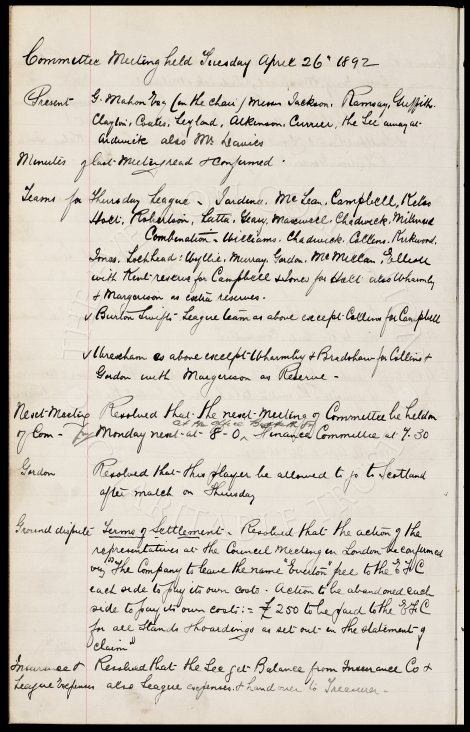 Committee Meeting held Tuesday April 26th 1892
Present G. Mahon Esq (in the chair) Messrs Jackson, Ramsay, Griffiths
Clayton, Coates, Leyland, Atkinson, Currier, the Sec away at
Ardwick also Mr Davies
Minutes of last Meeting read & confirmed.
Teams for Thursday League - Jardine, McLean, Campbell, Kelso
Holt, Robertson, Latta, Geary, Maxwell, Chadwick, Millward
Combination - Williams, Chadwick, Collins, Kirkwood,
Jones, Lochhead, Wyllie, Murray, Gordon, McMillan, Elliott
with Kent reserve for Campbell & Jones for Holt also Wharmby
& Margerison as extra reserves.
✓ Burton Swifts - League team as above except Collins for Campbell
✓ Wrexham as above except Wharmby & Bradshaw for Collins &
Gordon with Margerison as Reserve -
Next Meeting Resolved that the next Meeting of Committee be held on
at the office
of Com - Monday next at 8-0, Finance Committee at 7.30
Gordon Resolved that this player be allowed to go to Scotland
after match on Thursday
Ground dispute Terms of Settlement - Resolved that the action of the
representatives at the Council Meeting in London be confirmed
viz "The Company to leave the name "Everton" free to the EFC
each side to pay its own costs. Action to be abandoned each
side to pay its own costs:- £250 to be paid to the EFC
for all Stands & hoardings as set out in the statement of
claim"
Insurance & Resolved that the Sec get Balance from Insurance Co &
League Expenses also League expenses & hand over to Treasurer -